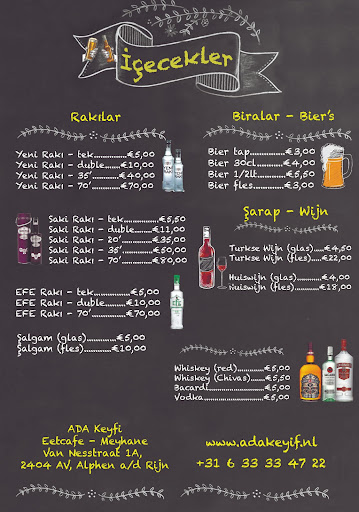 İçecekler
Rakılar
Yeni Rakı - tek........€5,00
Yeni Rakı - duble......€10,00
Yeni Rakı - 35'........€40,00
Yeni Rakı - 70'........€70,00
Saki Rakı - tek........€5,50
Saki Rakı - duble......€11,00
Saki Rakı - 20'........€35,00
Saki Rakı - 35'........€50,00
Saki Rakı - 70'........€80,00
EFE Rakı - tek........€5,00
EFE Rakı - duble......€10,00
EFE Rakı - 70'........€70,00
Şalgam (glas)..........€5,00
Şalgam (fles)..........€10,00
Biralar - Bier's
Bier tap..........€3,00
Bier 30cl........€4,00
Bier 1/2lt.......€5,50
Bier fles........€3,00
Şarap - Wijn
Turkse Wijn (glas)....€4,50
Turkse Wijn (fles)...€22,00
Huiswijn (glas)........€4,00
Huiswijn (fles)........€18,00
Whiskey (red)..........€5,00
Whiskey (Chivas)......€5,50
Bacardi................€5,00
Vodka..................€5,00
ADA Keyfi
Eetcafe - Meyhane
Van Nesstraat 1A,
2404 AV, Alphen a/d Rijn
www.adakeyif.nl
+31 6 33 33 47 22